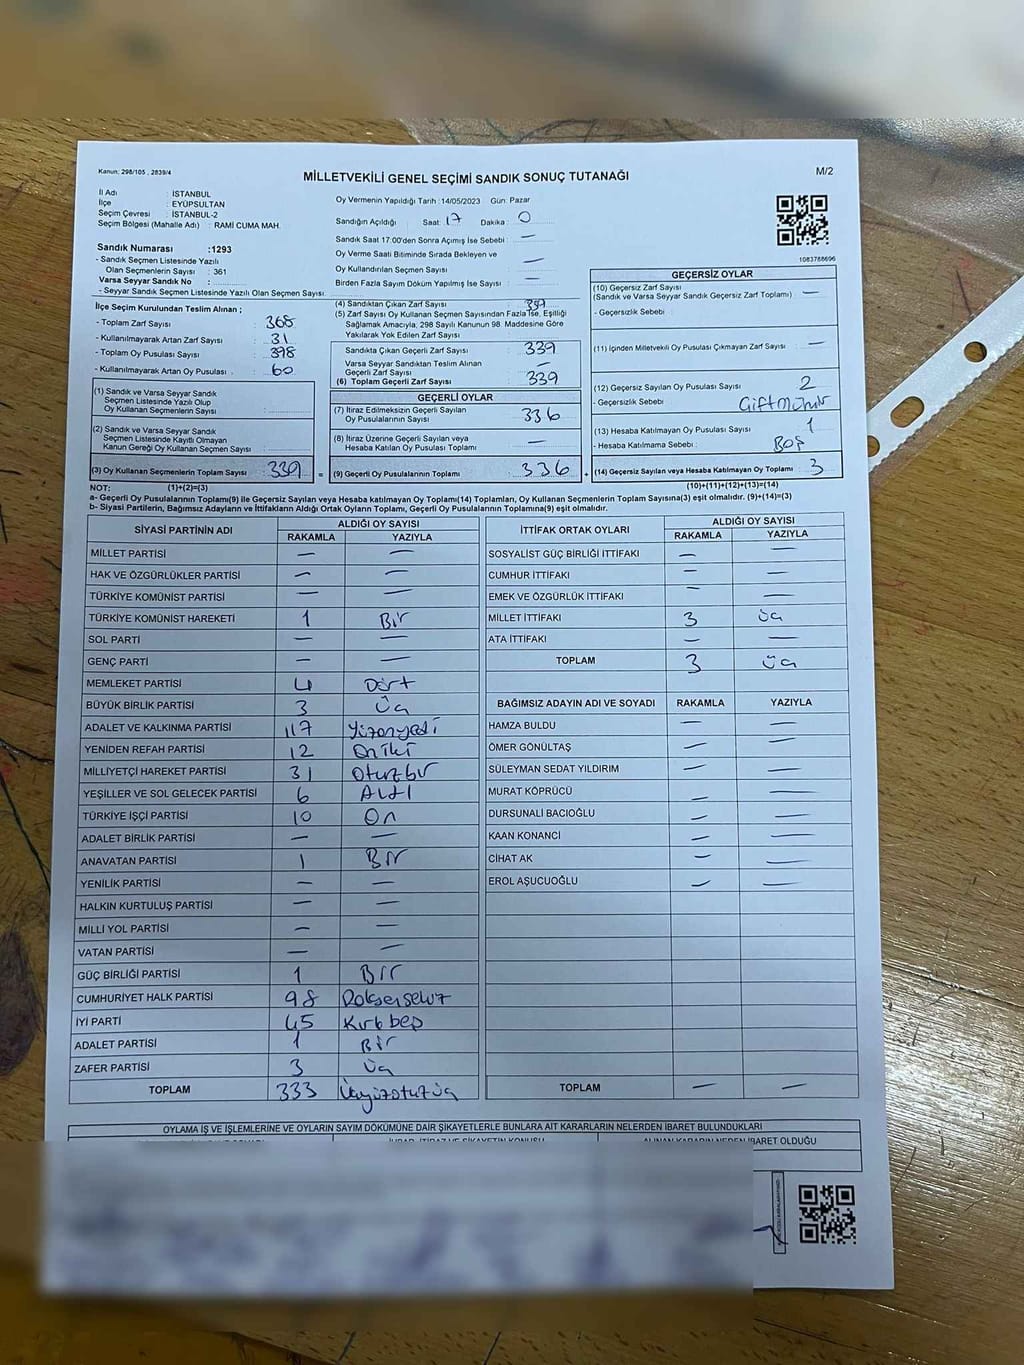 Kanun: 298/105 , 2839/4
MİLLETVEKİLİ GENEL SEÇİMİ SANDIK SONUÇ TUTANAĞI
M/2
İl Adı : İSTANBUL
İlçe : EYÜPSULTAN
Seçim Çevresi : İSTANBUL-2
Seçim Bölgesi (Mahalle Adı) : RAMİ CUMA MAH.
Sandık Numarası :1293
- Sandık Seçmen Listesinde Yazılı
Olan Seçmenlerin Sayısı : 361
Varsa Seyyar Sandık No :
- Seyyar Sandık Seçmen Listesinde Yazılı Olan Seçmen Sayısı
İlçe Seçim Kurulundan Teslim Alınan ;
- Toplam Zarf Sayısı : 368
- Kullanılmayarak Artan Zarf Sayısı : 31
- Toplam Oy Pusulası Sayısı : 398
- Kullanılmayarak Artan Oy Pusulası : 60
(1) Sandık ve Varsa Seyyar Sandık
Seçmen Listesinde Yazılı Olup
Oy Kullanan Seçmenlerin Sayısı :
(2) Sandık ve Varsa Seyyar Sandık
Seçmen Listesinde Kayıtlı Olmayan
Kanun Gereği Oy Kullanan Seçmen Sayısı :
(3) Oy Kullanan Seçmenlerin Toplam Sayısı : 339 =
Oy Vermenin Yapıldığı Tarih :14/05/2023 Gün: Pazar
Sandığın Açıldığı Saat: 17 Dakika : 0
Sandık Saat 17:00'den Sonra Açımış İse Sebebi : —
Oy Verme Saati Bitiminde Sırada Bekleyen ve
Oy Kullandırılan Seçmen Sayısı : —
Birden Fazla Sayım Döküm Yapılmış İse Sayısı : —
(4) Sandıktan Çıkan Zarf Sayısı : 339
(5) Zarf Sayısı Oy Kullanan Seçmen Sayısından Fazla İse, Eşitliği
Sağlamak Amacıyla; 298 Sayılı Kanunun 98. Maddesine Göre
Yakılarak Yok Edilen Zarf Sayısı :
Sandıkta Çıkan Geçerli Zarf Sayısı : 339
Varsa Seyyar Sandıktan Teslim Alınan
Geçerli Zarf Sayısı :
(6) Toplam Geçerli Zarf Sayısı : 339
GEÇERLİ OYLAR
(7) İtiraz Edilmeksizin Geçerli Sayılan
Oy Pusulalarının Sayısı : 336
(8) İtiraz Üzerine Geçerli Sayılan veya
Hesaba Katılan Oy Pusulası Toplamı : —
(9) Geçerli Oy Pusulalarının Toplamı : 336 +
1083788696
GEÇERSİZ OYLAR
(10) Geçersiz Zarf Sayısı
(Sandık ve Varsa Seyyar Sandık Geçersiz Zarf Toplamı) : —
- Geçersizlik Sebebi :
(11) İçinden Milletvekili Oy Pusulası Çıkmayan Zarf Sayısı : —
(12) Geçersiz Sayılan Oy Pusulası Sayısı : 2
- Geçersizlik Sebebi : Çift Mühür
(13) Hesaba Katılmayan Oy Pusulası Sayısı : 1
- Hesaba Katılmama Sebebi : Boş
(14) Geçersiz Sayılan veya Hesaba Katılmayan Oy Toplamı : 3
NOT: (1)+(2)=(3) (10)+(11)+(12)+(13)=(14)
a- Geçerli Oy Pusulalarının Toplamı(9) ile Geçersiz Sayılan veya Hesaba katılmayan Oy Toplamı(14) Toplamları, Oy Kullanan Seçmenlerin Toplam Sayısına(3) eşit olmalıdır. (9)+(14)=(3)
b- Siyasi Partilerin, Bağımsız Adayların ve İttifakların Aldığı Ortak Oyların Toplamı, Geçerli Oy Pusulalarının Toplamına(9) eşit olmalıdır.
SİYASİ PARTİNİN ADI ALDIĞI OY SAYISI
RAKAMLA YAZIYLA
MİLLET PARTİSİ — —
HAK VE ÖZGÜRLÜKLER PARTİSİ — —
TÜRKİYE KOMÜNİST PARTİSİ — —
TÜRKİYE KOMÜNİST HAREKETİ 1 Bir
SOL PARTİ — —
GENÇ PARTİ — —
MEMLEKET PARTİSİ 4 Dört
BÜYÜK BİRLİK PARTİSİ 3 Üç
ADALET VE KALKINMA PARTİSİ 117 Yüzonyedi
YENİDEN REFAH PARTİSİ 12 Oniki
MİLLİYETÇİ HAREKET PARTİSİ 31 Otuzbir
YEŞİLLER VE SOL GELECEK PARTİSİ 6 Altı
TÜRKİYE İŞÇİ PARTİSİ 10 On
ADALET BİRLİK PARTİSİ — —
ANAVATAN PARTİSİ 1 Bir
YENİLİK PARTİSİ — —
HALKIN KURTULUŞ PARTİSİ — —
MİLLİ YOL PARTİSİ — —
VATAN PARTİSİ — —
GÜÇ BİRLİĞİ PARTİSİ 1 Bir
CUMHURİYET HALK PARTİSİ 98 Doksensekiz
İYİ PARTİ 45 Kırkbeş
ADALET PARTİSİ 1 Bir
ZAFER PARTİSİ 3 Üç
TOPLAM 333 Üçyüzotuzüç
İTTİFAK ORTAK OYLARI ALDIĞI OY SAYISI
RAKAMLA YAZIYLA
SOSYALİST GÜÇ BİRLİĞİ İTTİFAKI — —
CUMHUR İTTİFAKI — —
EMEK VE ÖZGÜRLÜK İTTİFAKI — —
MİLLET İTTİFAKI 3 Üç
ATA İTTİFAKI — —
TOPLAM 3 Üç
BAĞIMSIZ ADAYIN ADI VE SOYADI RAKAMLA YAZIYLA
HAMZA BULDU — —
ÖMER GÖNÜLTAŞ — —
SÜLEYMAN SEDAT YILDIRIM — —
MURAT KÖPRÜCÜ — —
DURSUNALİ BACIOĞLU — —
KAAN KONANCİ — —
CİHAT AK — —
EROL AŞUCUOĞLU — —
TOPLAM — —
OYLAMA İŞ VE İŞLEMLERİNE VE OYLARIN SAYIM DÖKÜMÜNE DAİR ŞİKAYETLERLE BUNLARA AİT KARARLARIN NELERDEN İBARET BULUNDUKLARI
ALINAN KARARIN NEDEN İBARET OLDUĞU